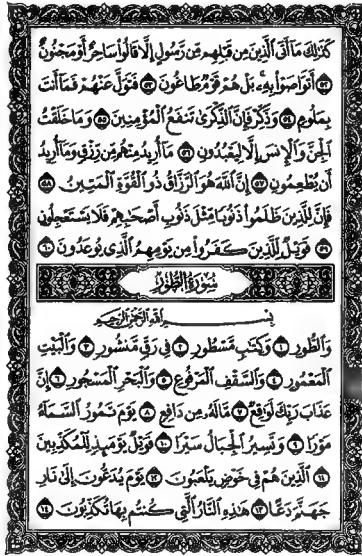 كَذَٰلِكَ مَا أَتَى الَّذِينَ مِن قَبْلِهِم مِّن رَّسُولٍ إِلَّا قَالُوا سَاحِرٌ أَوْ مَجْنُونٌ
٥٢ أَتَوَاصَوْا بِهِ بَلْ هُمْ قَوْمٌ طَاغُونَ ٥٣ فَتَوَلَّ عَنْهُمْ فَمَا أَنتَ
بِمَلُومٍ ٥٤ وَذَكِّرْ فَإِنَّ الذِّكْرَىٰ تَنفَعُ الْمُؤْمِنِينَ ٥٥ وَمَا خَلَقْتُ
الْجِنَّ وَالْإِنسَ إِلَّا لِيَعْبُدُونِ ٥٦ مَا أُرِيدُ مِنْهُم مِّن رِّزْقٍ وَمَا أُرِيدُ
أَن يُطْعِمُونِ ٥٧ إِنَّ اللَّهَ هُوَ الرَّزَّاقُ ذُو الْقُوَّةِ الْمَتِينُ ٥٨
فَإِنَّ لِلَّذِينَ ظَلَمُوا ذَنُوبًا مِّثْلَ ذَنُوبِ أَصْحَابِهِمْ فَلَا يَسْتَعْجِلُونِ
٥٩ فَوَيْلٌ لِّلَّذِينَ كَفَرُوا مِن يَوْمِهِمُ الَّذِي يُوعَدُونَ ٦٠
سُورَةُ الطُّورِ
بِسْمِ اللَّهِ الرَّحْمَٰنِ الرَّحِيمِ
وَالطُّورِ ١ وَكِتَابٍ مَّسْطُورٍ ٢ فِي رَقٍّ مَّنشُورٍ ٣ وَالْبَيْتِ
الْمَعْمُورِ ٤ وَالسَّقْفِ الْمَرْفُوعِ ٥ وَالْبَحْرِ الْمَسْجُورِ ٦ إِنَّ
عَذَابَ رَبِّكَ لَوَاقِعٌ ٧ مَّا لَهُ مِن دَافِعٍ ٨ يَوْمَ تَمُورُ السَّمَاءُ
مَوْرًا ٩ وَتَسِيرُ الْجِبَالُ سَيْرًا ١٠ فَوَيْلٌ يَوْمَئِذٍ لِّلْمُكَذِّبِينَ
١١ الَّذِينَ هُمْ فِي خَوْضٍ يَلْعَبُونَ ١٢ يَوْمَ يُدَعُّونَ إِلَىٰ نَارِ
جَهَنَّمَ دَعًّا ١٣ هَٰذِهِ النَّارُ الَّتِي كُنتُم بِهَا تُكَذِّبُونَ ١٤